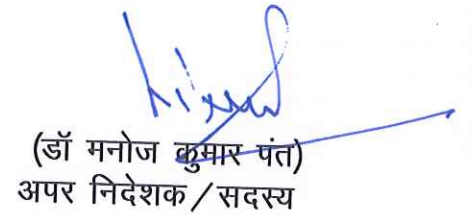 (डॉ मनोज कुमार पंत)
अपर निदेशक/सदस्य